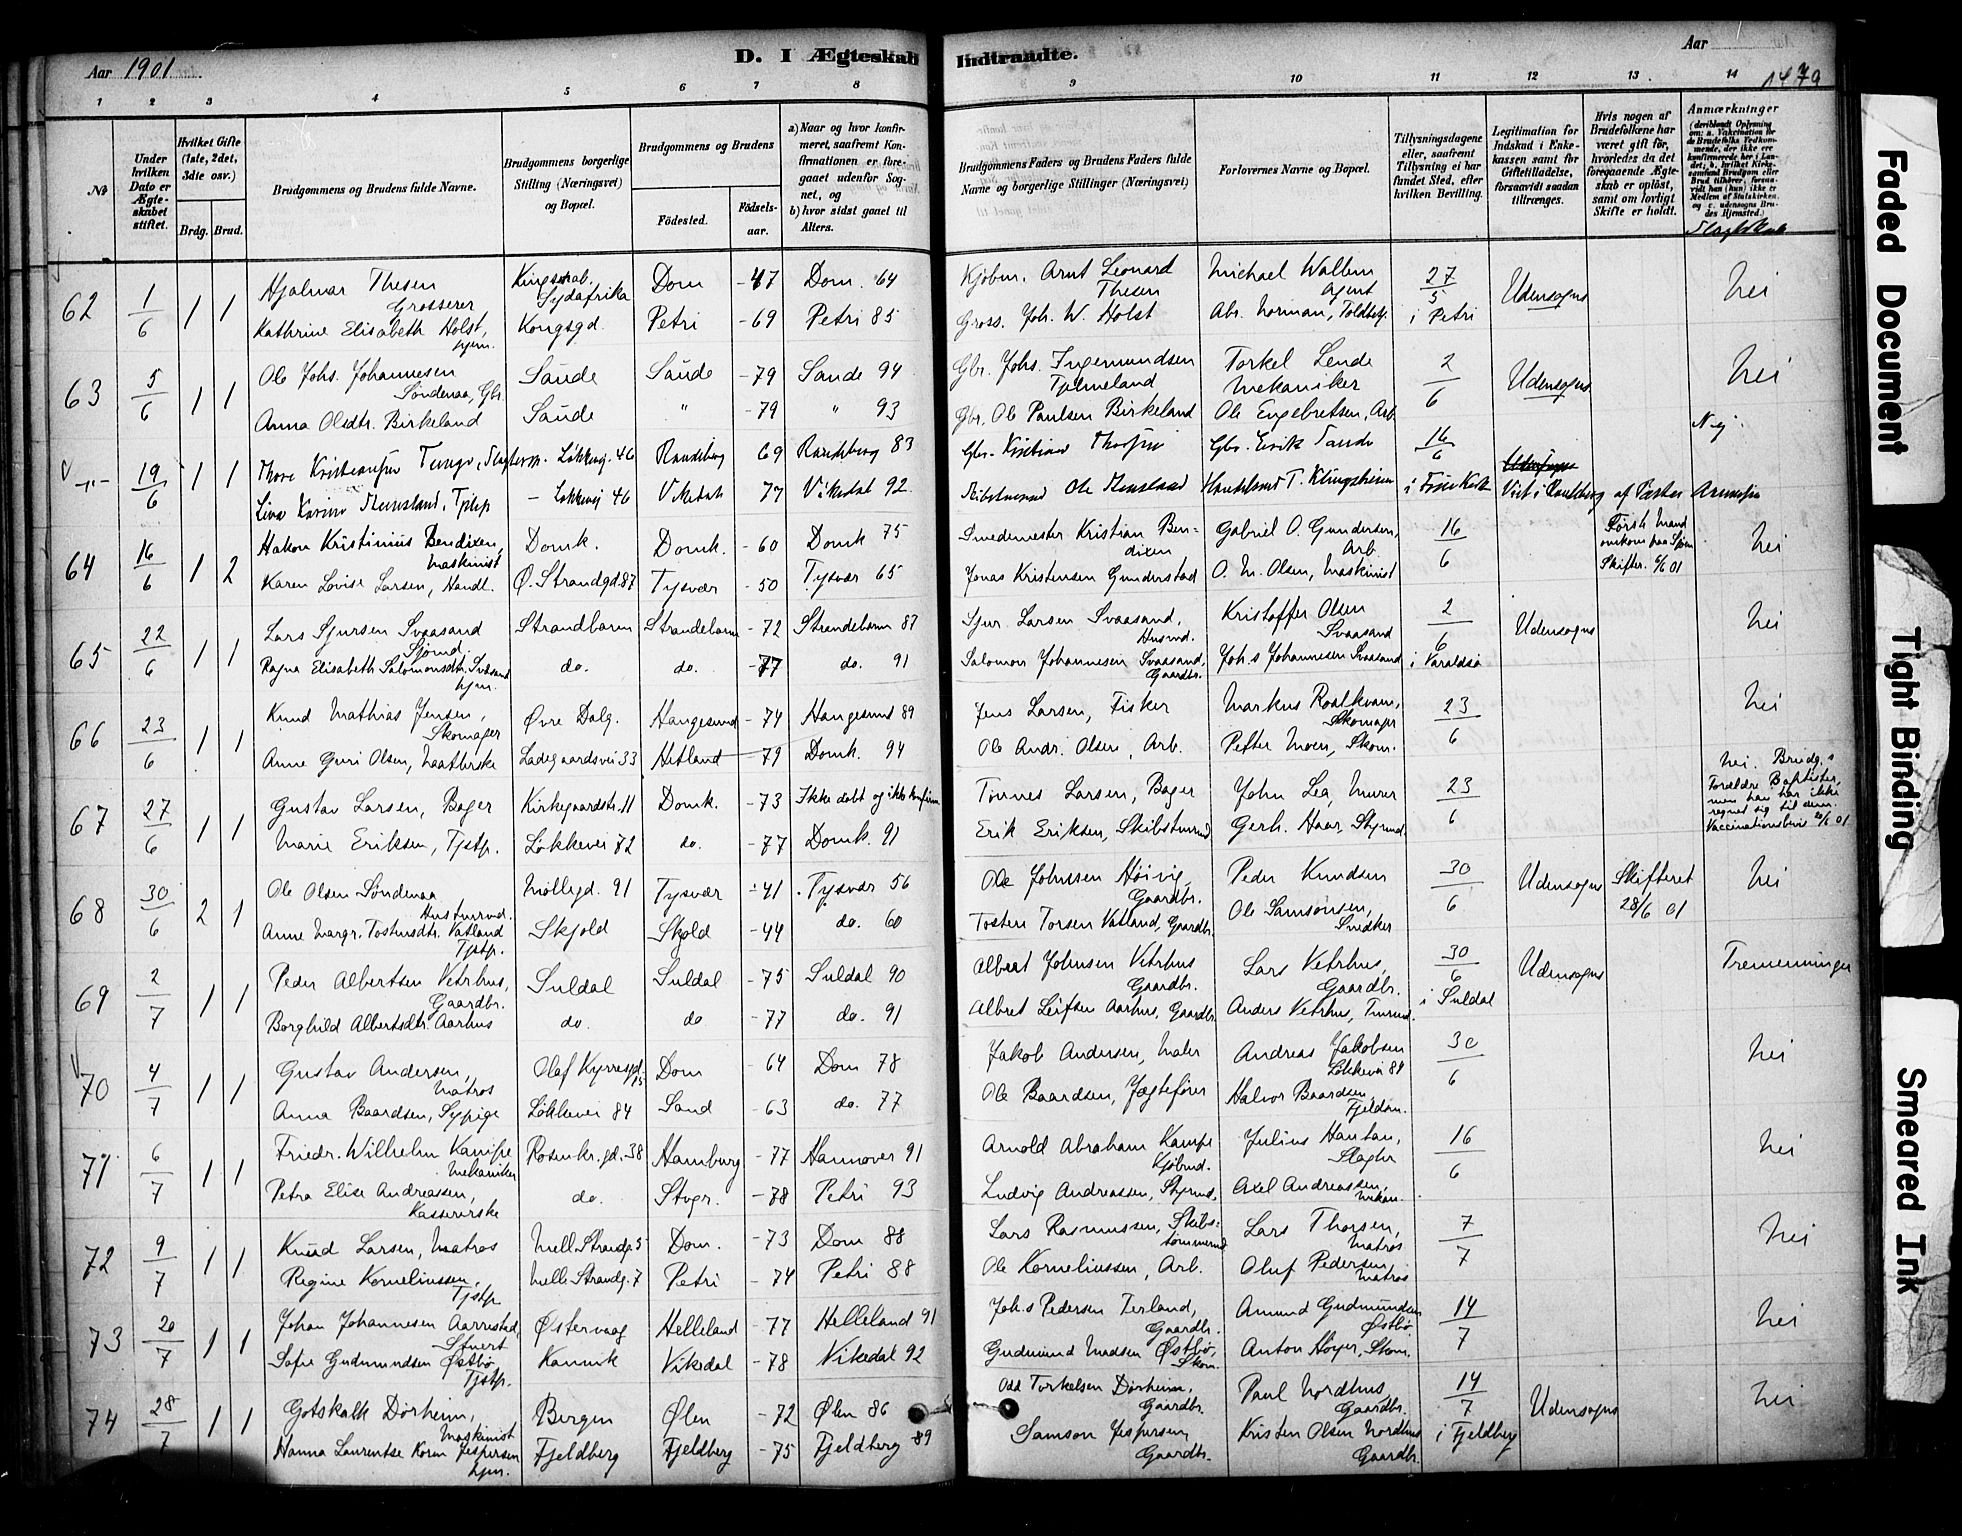 Aar 1901
D. I Ægteskab Indtraadte.
Aar
1 2 3 4 5 6 7 8 9 10 11 12 13 14
No
Under hvilken Dato er Ægteskabet stiftet.
Hvilket Gifte (1ste, 2det, 3die osv.)
Brdg. Brud.
Brudgommens og Brudens fulde Navne.
Brudgommens borgerlige Stilling (Næringsvei) og Bopæl.
Brudgommens og Brudens
Fødested. Fødsels-aar.
a) Naar og hvor konfirmeret, saafremt Konfirmationen er foregaaet udenfor Sognet, og
b) hvor sidst gaaet til Alters.
Brudgommens Faders og Brudens Faders fulde Navne og borgerlige Stillinger (Næringsvei)
Forlovernes Navne og Bopæl.
Tillysningsdagene eller, saafremt Tillysning ei har fundet Sted, efter hvilken Bevilling.
Legitimation for Indskud i Enkekassen samt for Giftetilladelse, forsaavidt saadan tiltrænges.
Hvis nogen af Brudefolkene har været gift før, hvorledes da det foregaaende Ægteskab er opløst, samt om lovligt Skifte er holdt.
Anmærkninger
Slægtskab
62 1/6 1 1 Hjalmar Thesen Grosserer Sydafrika Dom -47 Dom. 64 Kjøbm. Arnt Leonard Thesen Michael Wallem Agent 27/5 Udensogns Nei
Kathrine Elisabeth Holst, hjem. Kongsgd. Petri -69 Petri 85 Gross. Joh. W. Holst Abr. Norman, Toldbetj. i Petri
63 5/6 1 1 Ole Johs. Johannesen Søndenaa, Gbr. Saude Saude -79 Saude 94 Gbr. Johs. Ingemundsen Torkel Lende Mekaniker 2/6 Udensogns Nei
Anna Olsdtr. Birkeland Saude " -79 " 93 Gbr. Ole Paulsen Birkeland Ole Engebretsen, Arb.
19/6 1 1 Løkkevj. 46 Randeberg 69 Randeberg 83 16/6 Nej.
Løkkevej 46 Vikedal 77 Vikedal 92
64 16/6 1 2 Hakon Kristinius Bendixen, Maskinist Domk. Domk. -60 Domk 75 Smedemester Kristian Bendixen Gabriel O. Gundersen, Arb. 16/6 Først. Mand omkom paa Sjøen Skifter. 6/6 01 Nei
Karen Lovise Larsen, Handl. Ø. Strandgd. 87 Tysvær -50 Tysvær 65 Jonas Kristensen Gunderstad O. M. Olsen, Maskinist
65 22/6 1 1 Lars Sjursen Svaasand Sjømd. Strandbarm Strandebarm -72 Strandebarm 87 Sjur Larsen Svaasand, Husmd. Kristoffer Olsen Svaasand 2/6 Udensogns Nei
Ragna Elisabeth Salomonsdtr. Svåsand hjem. do. do. -77 do. 91 Salomon Johannesen Svaasand, Gaardbr. Joh.s Johannesen Svaasand i Varaldsø
66 23/6 1 1 Knud Mathias Jensen, Skomager Øvre Dalg. Haugesund -74 Haugesund 89 Jens Larsen, Fisker Markus Roalkvam, Skomager 23/6 Nei
Anne Guri Olsen, Ladegaardsvei 33 Hetland -79 Domk. 94 Ole Andr. Olsen, Arb. Petter Moen, Skom.
67 27/6 1 1 Gustav Larsen, Bager Kirkegaardstr. 11 Domk. -73 Ikke døbt og ikke konfirm Tønnes Larsen, Bager John Lea, Murer 23/6 Nei. Brudg.s Forældre Baptister, men han har ikke regnet sig til dem. Vaccinationsbevis 20/6 01
Marie Eriksen, Tjstp. Løkkevei 72 do. -77 Domk. 91 Erik Eriksen, Skibstmrmd Gerh. Haar, Styrmd.
68 30/6 2 1 Ole Olsen Søndenaa Hustmrmd. Møllegd. 91 Tysvær -41 Tysvær 56 Ole Johnsen Høivig, Gaardbr. Peder Knudsen 30/6 Udensogns Skifteret 28/6 01 Nei
Anne Margr. Tostensdtr. Vatland Tjstp. Skjold Skold -44 do. 60 Tosten Torsen Vatland, Gaardbr. Ole Samsonsen, Snedker
69 2/7 1 1 Peder Albertsen Vetrhus, Gaardbr. Suldal Suldal -75 Suldal 90 Albert Johnsen Vetrhus Gaardbr. Lars Vetrhus, Gaardbr. 30/6 Udensogns Tremenninger
Borghild Albertsdtr. Aarhus do. do -77 do. 91 Albret Leifsen Aarhus, Gaardbr. Anders Vetrhus, Tmrmd. i Suldal
70 4/7 1 1 Gustav Andersen, Matros Olaf Kyrresgd. 15 Dom -64 Dom 78 Jakob Andersen, Maler Andreas Jakobsen Løkkevei 88 30/6 Nei
Anna Baardsen, Sypige Løkkevei 84 Sand -63 do. 77 Ole Baardsen, Jægtefører Halvor Baardsen
71 6/7 1 1 Friedr. Wilhelm Kampe Mekaniker Rosenkr.gd. 38 Hamburg -77 Hannover 91 Arnold Abraham Kampe Kjøbmd. Julius Hautan, Slagter 16/6 Nei
Petra Elise Andreassen, Kassererske do. Stvgr. -78 Petri 93 Ludvig Andreassen, Styrmd. Axel Andreassen, Mekan.
72 9/7 1 1 Knud Larsen, Matros Mell Strandg. 5 Dom. -73 Dom 88 Lars Rasmussen, Skibs-tømmermd Lars Thorsen, Matros 7/7 Nei
Regine Korneliussen, Tjstp. Mell. Strandg. 7 Petri -74 Petri 88 Ole Korneliussen, Arb. Oluf Pedersen, Matros
73 20/7 1 1 Johan Johannesen Aarrestad, Stuert Østervaag Helleland -77 Helleland 91 Joh.s Pedersen Terland, Gaardbr. Amund Gudmundsen Østbø 14/7 Nei
Sofie Gudmundsen Østbø, Tjstp. Kannik Vikedal -78 Vikedal 92 Gudmund Madsen Østbø, Skom. Anton Høyer, Skom.
74 28/7 1 1 Gotskalk Dørheim, Maskinist Bergen Ølen -72 Ølen 86 Odd Torkelsen Dørheim, Gaardbr. Paul Nordhus, Gaardbr. 14/7 Udensogns Nei
Hanna Laurentse Koren Jespersen hjem. Fjeldberg Fjeldberg -75 Fjeldberg 89 Samson Jespersen, Gaardbr. Kristen Olsen Nordhus Gaardbr. i Fjeldberg
Faded Document
Tight Binding
Smeared Ink